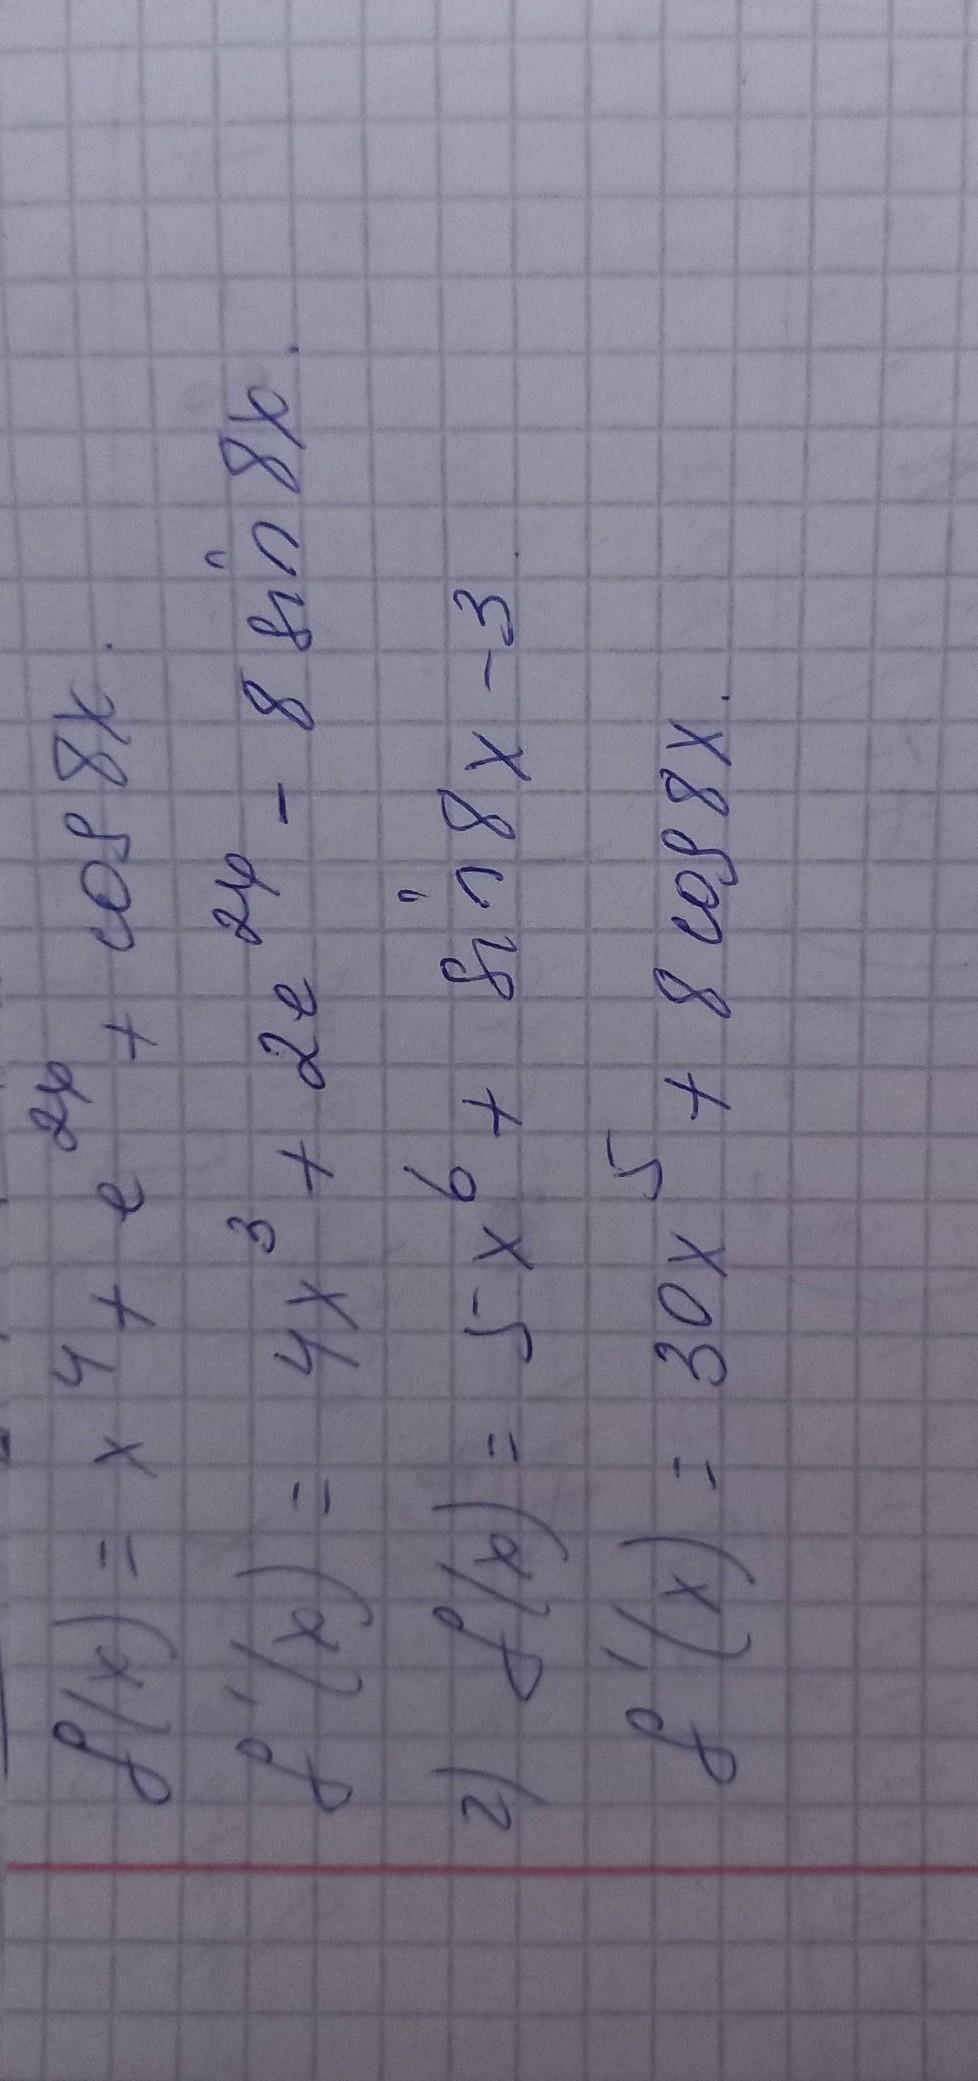 f(x) = x⁴ + e²ˣ + cos 8x.
f'(x) = 4x³ + 2e²ˣ - 8 sin 8x.
2) f(x) = 5x⁶ + sin 8x - 3.
f'(x) = 30x⁵ + 8 cos 8x.